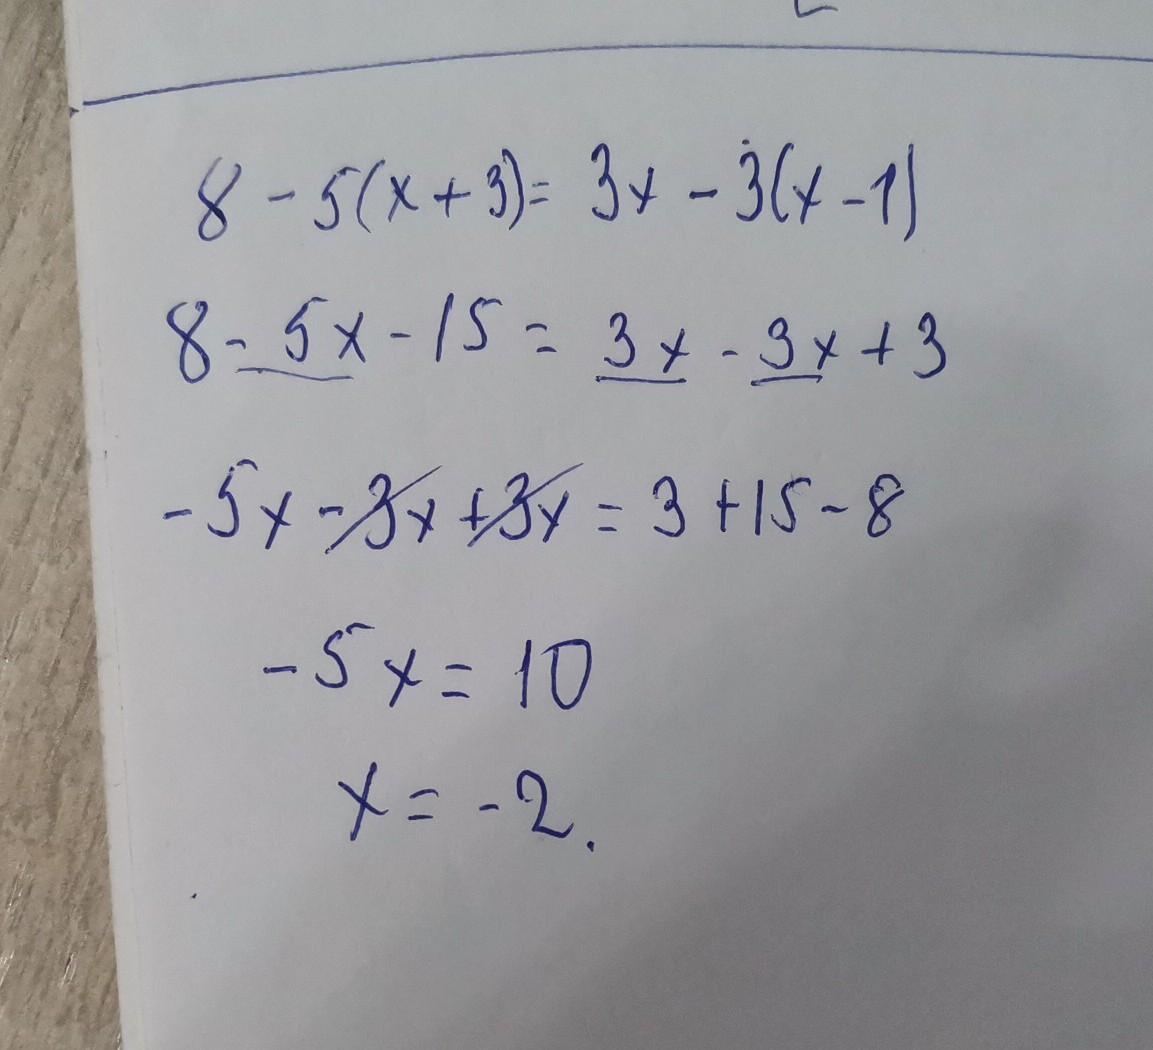 8 - 5(x + 3) = 3x - 3(x - 1)
8 - 5x - 15 = 3x - 3x + 3
-5x - 3x + 3x = 3 + 15 - 8
-5x = 10
x = -2.